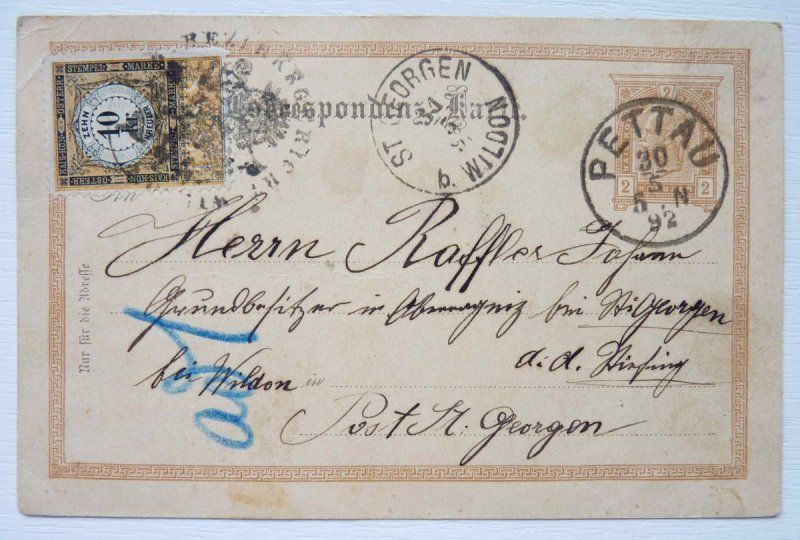 KAIS·KON·ÖSTERR·
STEMPEL MARKE
10
Kr.
ZEHN
KREUZER
KAIS·KON·ÖSTERR·
BEZIRKSGERICHT
Correspondenz-Karte.
ST GEORGEN
b. WILDON
2
2 2
PETTAU
30
5
8 N
92
An
Nur für die Adresse
Herrn Raffler Johann
Grundbesitzer in bei St. Georgen
bei Wildon in d. d.
Post St. Georgen